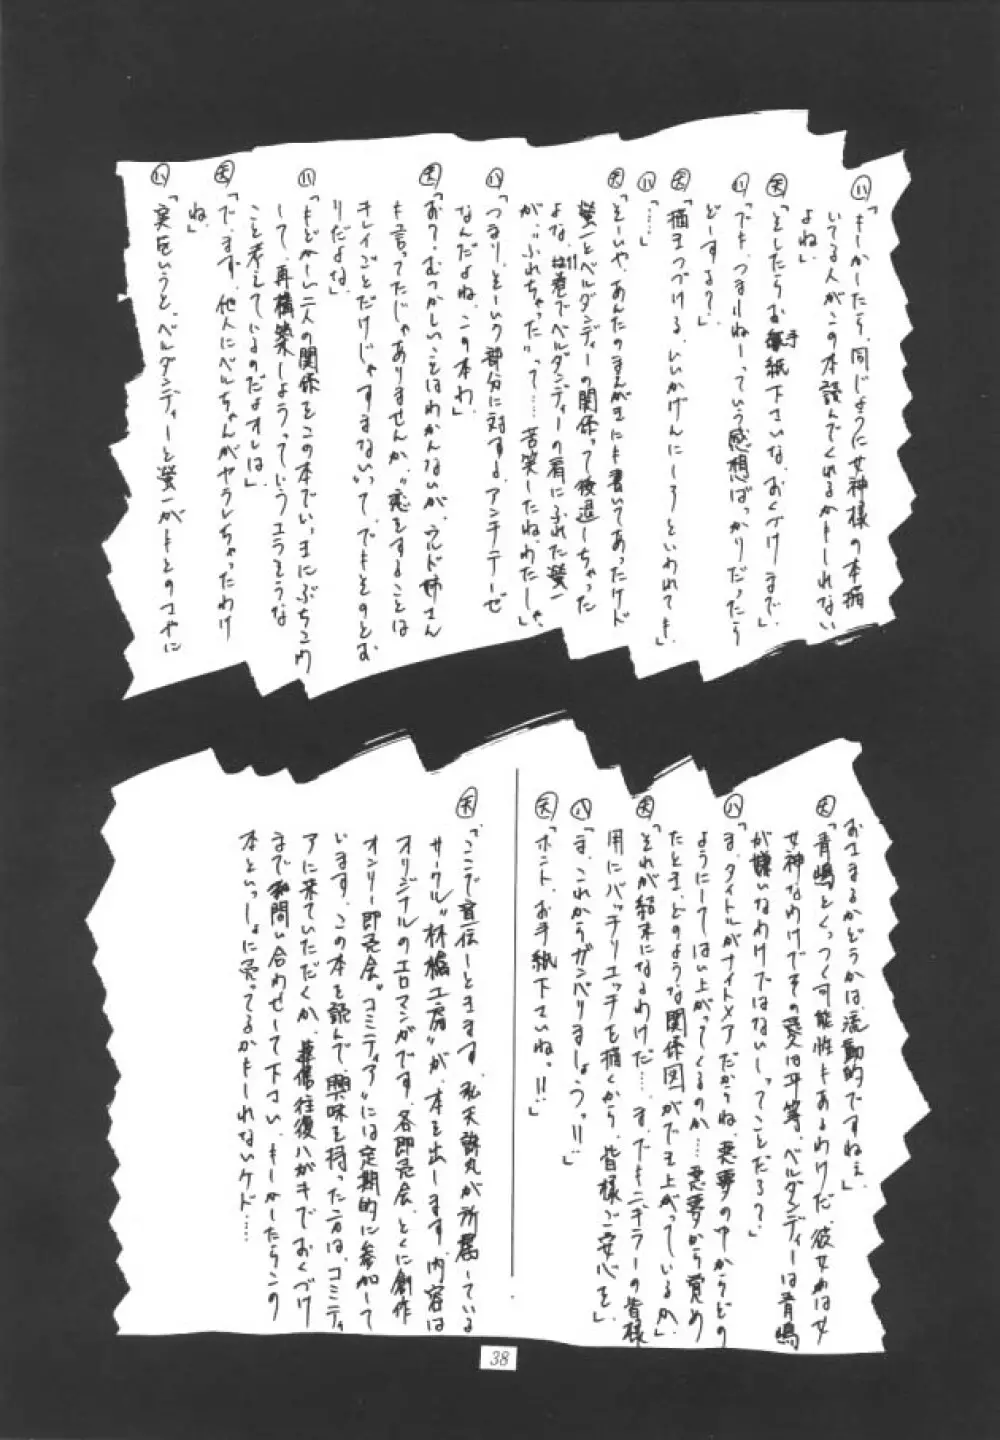 ㊇「もしかしたら、同じように女神様の本描
いてる人がこの本読んでくれるかもしれない
よね」
㊝「そしたらお手紙下さいな、おくづけまで」
㊇「でも、つまんねーっていう感想ばっかりだったら
どーする?」
㊝「描きつづける、いいかげんにしろといわれても」
㊇「……」
㊝「そーいや、あんたのまえがきにも書いてあったけド
螢一とベルダンディーの関係って後退しちゃった
よな、11巻でベルダンディーの肩にふれた螢一
が、"ふれちゃった"って……苦笑したね、わたしゃ」
㊇「つまり、そーいう部分に対する、アンチテーゼ
なんだよね、この本わ」
㊝「おって、むつかしいことはわかんないが、ウルド姉さん
も言ってたじゃありませんか、"恋をすることは
キレイごとだけじゃすまない"って、でもそのとお
りだよな」
㊇「もどかしい二人の関係をこの本でいっきにぶちこわ
して、再構築しようっていうエラそうな
こと考えているのだよオレは」
㊝「で、まず、他人にベルちゃんがヤラレちゃったわけ
ね」
㊇「実をいうと、ベルダンディーと螢一がもとのさやに
おさまるかどうかは、流動的ですねぇ」
㊝「青嶋とくっつく可能性もあるわけだ、彼女かは女
女神なわけでその愛は平等、ベルダンディーは青嶋
が嫌いなわけではないしってことだろ?」
㊇「ま、タイトルがナイトメアだからね、悪夢の中からどの
ようにしてはい上がってくるのか…悪夢から覚め
たとき、どのような関係図ができ上がっているか」
㊝「それが結末になるわけだ…ま、でもニギラーの皆様
用にバッチリエッチを描くから、皆様ご安心を」
㊇「ま、これからガンバりましょうっ!!」
㊝「ホント、お手紙下さいねっ!!」
㊝「、ここで宣伝しときます、私天誅丸が所属している
サークル"林檎工房"が、本を出します、内容は
オリジナルのエロマンガです、各即売会、とくに創作
オンリー即売会"コミティア"には定期的に参加して
います、この本を読んで、興味を持った方は、コミティ
アに来ていただくか、葉書往復ハガキでおくづけ
まで問い合わせして下さい、もしかしたらこの
本といっしょに売ってるかもしれないケド……
38